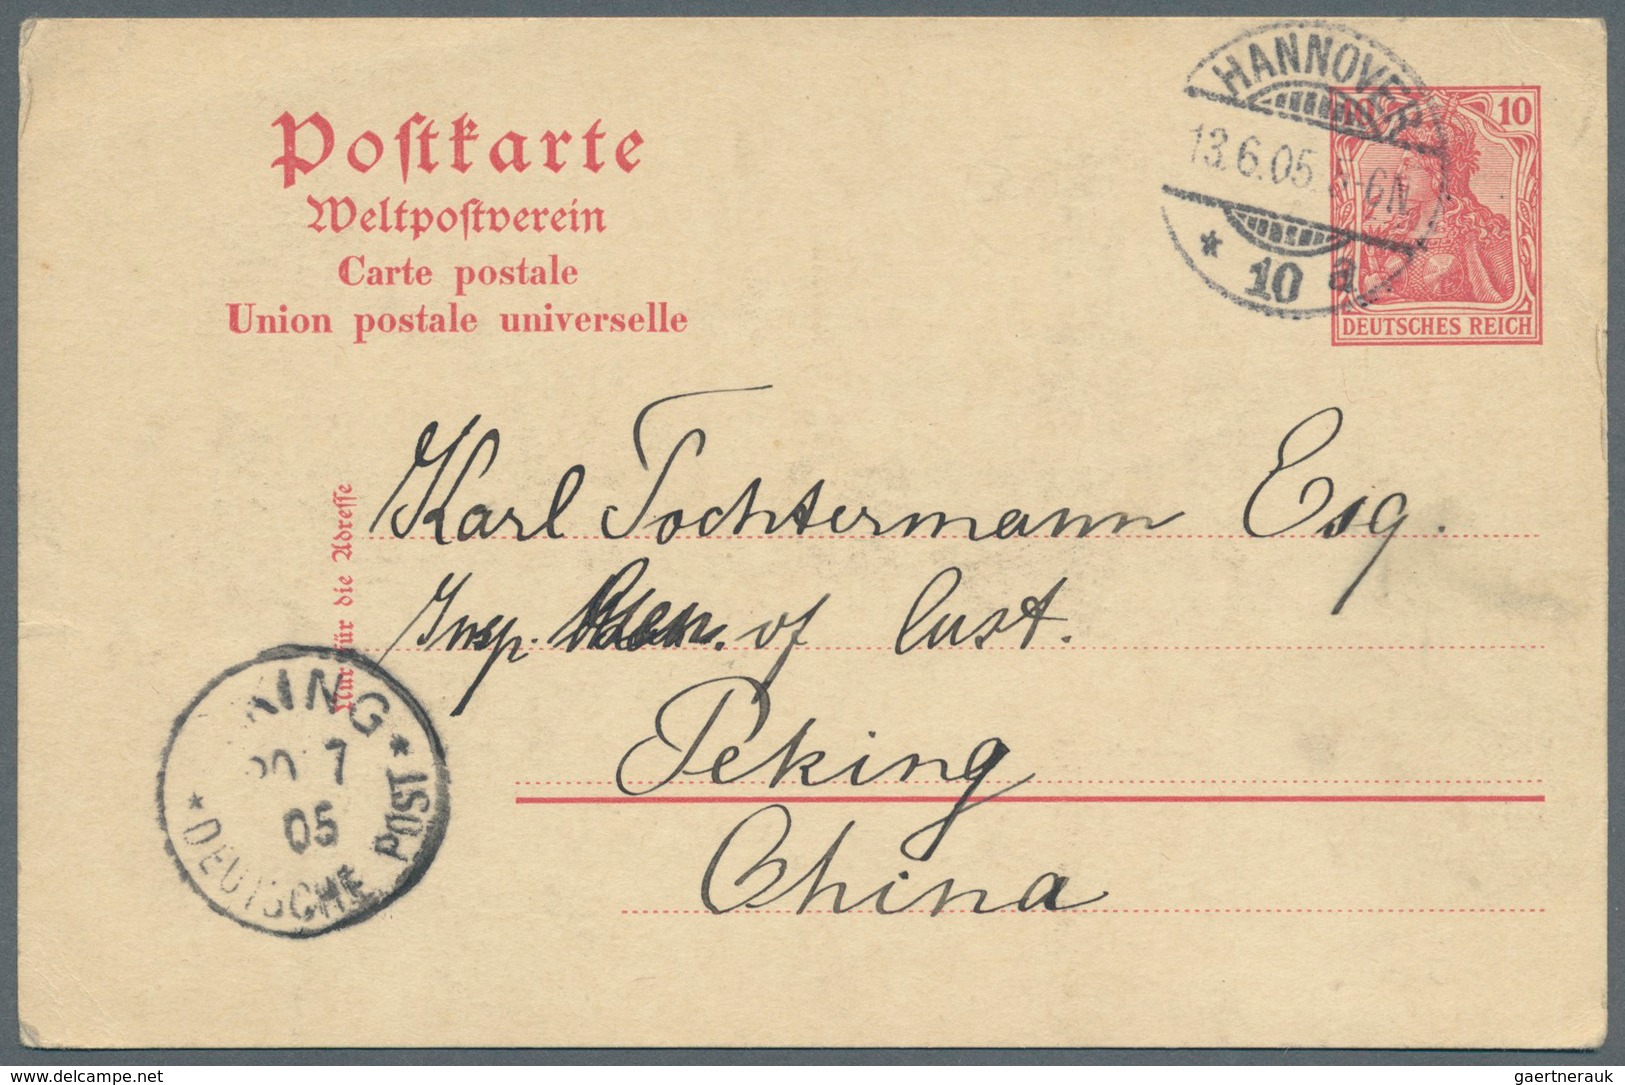 Postkarte
Weltpostverein
Carte postale
Union postale universelle
HANNOVER
13.6.05.
* 10 a
10
DEUTSCHES REICH
Nur für die Adresse
Karl Tochtermann Esq.
Insp. Gen. of Cust.
Peking
China
KING
7
05
* DEUTSCHE POST *
www.delcampe.net
gaertnerauk